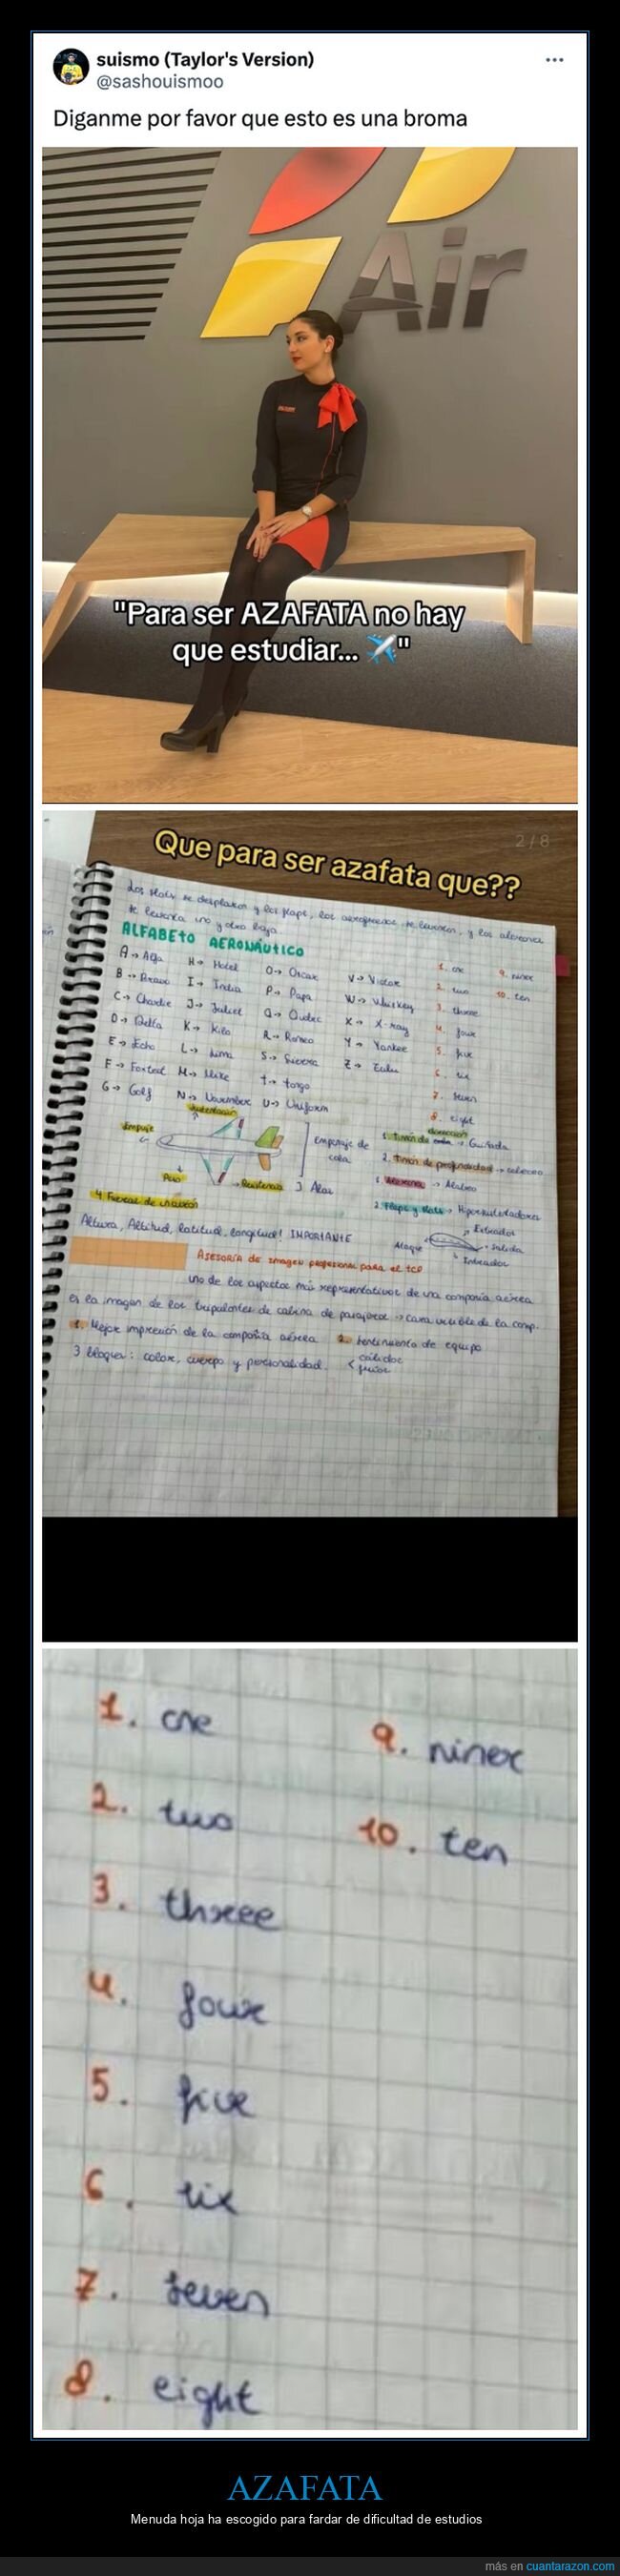 suismo (Taylor's Version)
@sashouismoo
Diganme por favor que esto es una broma
Air
"Para ser AZAFATA no hay
que estudiar... ✈️"
2/8
Que para ser azafata que??
Los slats se desplazan y los flaps, los aerofrenos se levantan, y los alerones
se levanta uno y otro baja.
ALFABETO AERONÁUTICO
A → Alfa
B → Bravo
C → Charlie
D → Delta
E → Echo
F → Foxtrot
G → Golf
H → Hotel
I → India
J → Juliet
K → Kilo
L → Lima
M → Mike
N → November
O → Oscar
P → Papa
Q → Quebec
R → Romeo
S → Sierra
T → Tango
U → Uniform
V → Victor
W → Whiskey
X → X-ray
Y → Yankee
Z → Zulu
1. one
2. two
3. threee
4. four
5. five
6. six
7. seven
8. eight
9. niner
10. ten
Sustentación
Empuje
Peso
Resistencia
4 Fuerzas de
Empenaje de
cola
3 Alas
dirección
1. Timón de → Guiñada
2. Timón de profundidad → cabeceo
1. Alerones → Alabeo
2. Flaps y Slats → Hipersustentadores
Altura, Altitud, latitud, longitud! IMPORTANTE
Ataque
Extrados
Salida
Intrados
ASESORÍA de imagen profesional para el TCP
uno de los aspectos más representativos de una compañía aérea
es la imagen de los tripulantes de cabina de pasajeros → cara visible de la comp.
1. Mejor impresión de la compañía aérea 2. Sentimiento de equipo
3 bloques: color, cuerpo y personalidad.
cálidos
fríos
1. one
2. two
3. threee
4. four
5. five
6. six
7. seven
8. eight
9. niner
10. ten
AZAFATA
Menuda hoja ha escogido para fardar de dificultad de estudios
más en cuantarazon.com